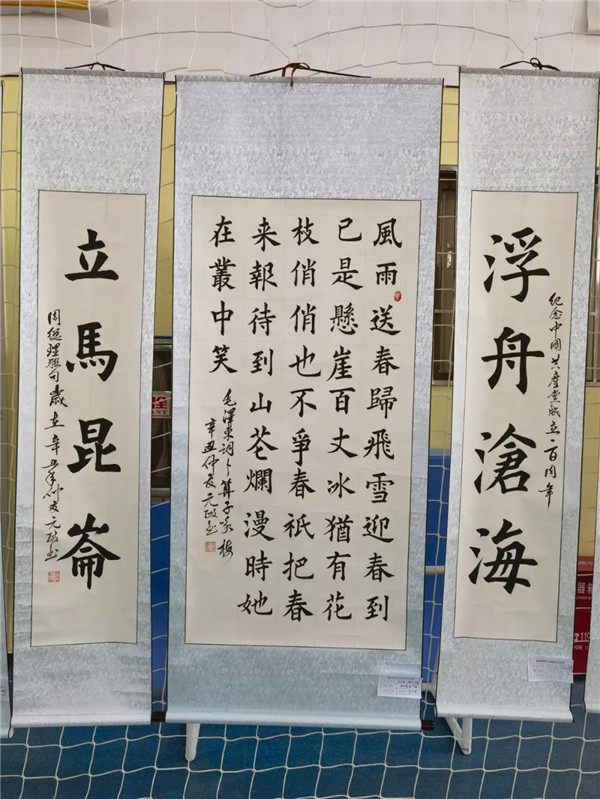 纪念中國共產党成立一百周年
浮舟滄海
風雨送春歸飛雪迎春到
已是懸崖百丈冰猶有花
枝俏俏也不爭春祇把春
来報待到山芲爛漫時她
在叢中笑
毛澤東詞卜算子詠梅
辛丑仲夏元政书
立馬昆崙
周總理聯句歲在辛丑年仲夏元政书